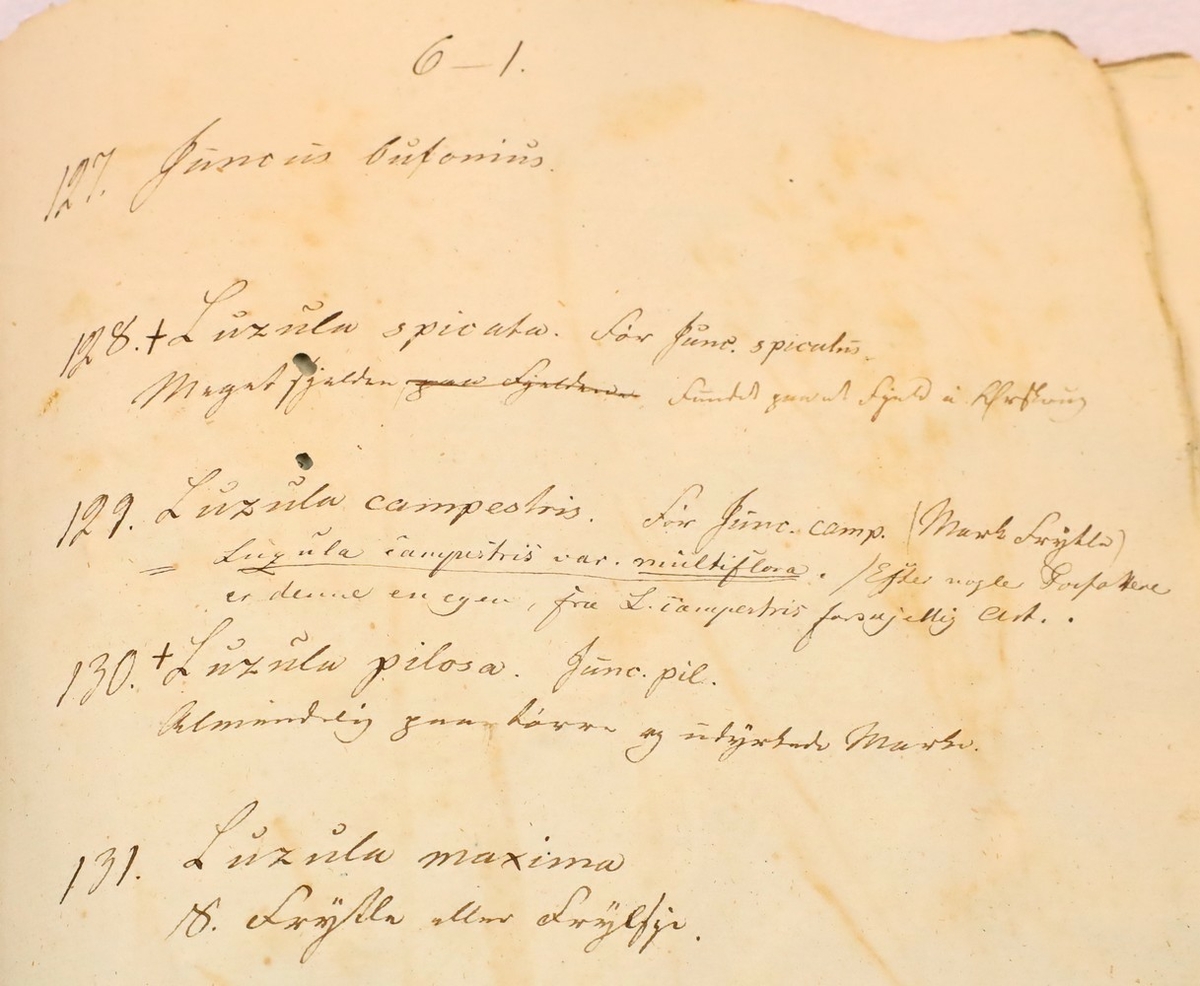 6–1.
127. Juncus bufonius.
128. + Luzula spicata. Før Junc. spicatus.
Meget sjelden paa Fjeldene Fundet paa et Fjeld i Ørskoug
129. Luzula campestris. Før Junc. camp. (Mark Frytle)
= Luzula campestris var. multiflora. / Efter nogle Forfattere
er denne en egen, fra L. campestris forskjellig Art. .
130. + Luzula pilosa. Junc. pil.
Almindelig paa tørre og udyrkede Marke.
131. Luzula maxima
S. Frytle eller